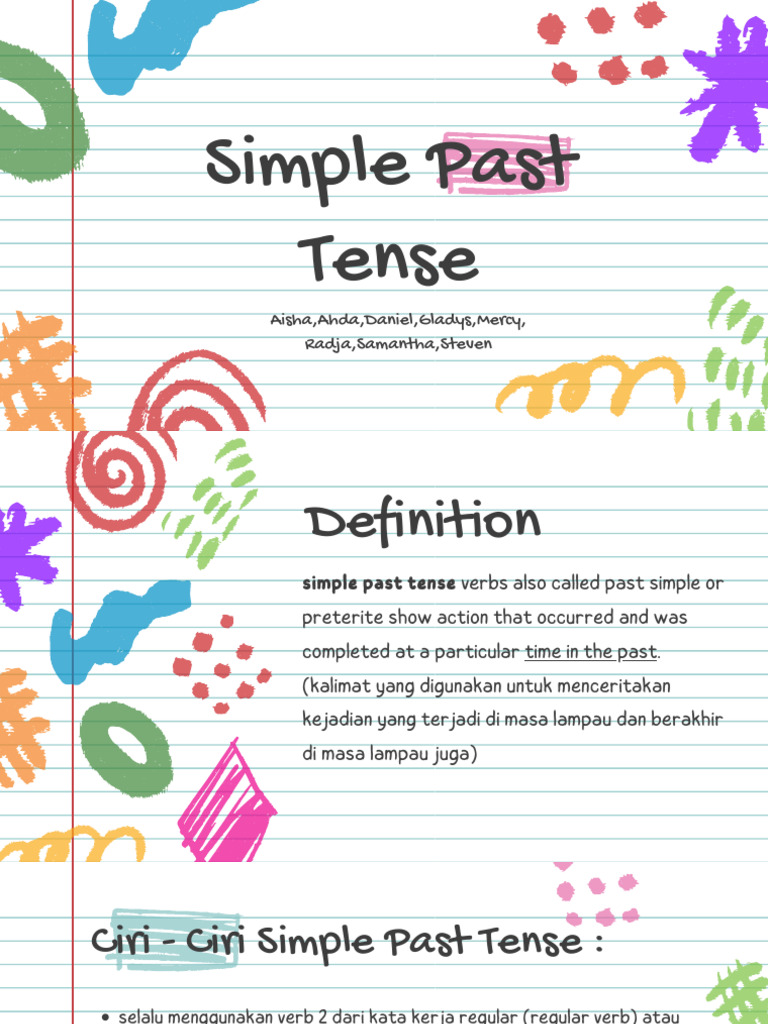 Simple Past
Tense
Aisha,Ahda,Daniel,Gladys,Mercy,
Radja,Samantha,Steven
Definition
simple past tense verbs also called past simple or
preterite show action that occurred and was
completed at a particular time in the past.
(kalimat yang digunakan untuk menceritakan
kejadian yang terjadi di masa lampau dan berakhir
di masa lampau juga)
Ciri - Ciri Simple Past Tense :
• selalu menggunakan verb 2 dari kata kerja regular (regular verb) atau